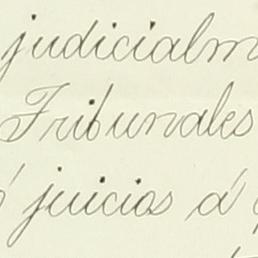 judicialm
Tribunales
juicios á